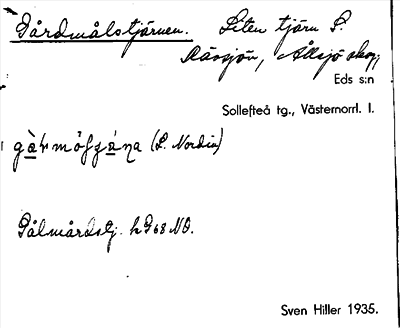 Gårdmålstjärnen. Liten tjärn S.
Rässjön, Ållsjö skog,
Eds s:n
Sollefteå tg., Västernorrl. l.
(L. Nordin)
Gålmårdstj. h 968 NO.
Sven Hiller 1935.